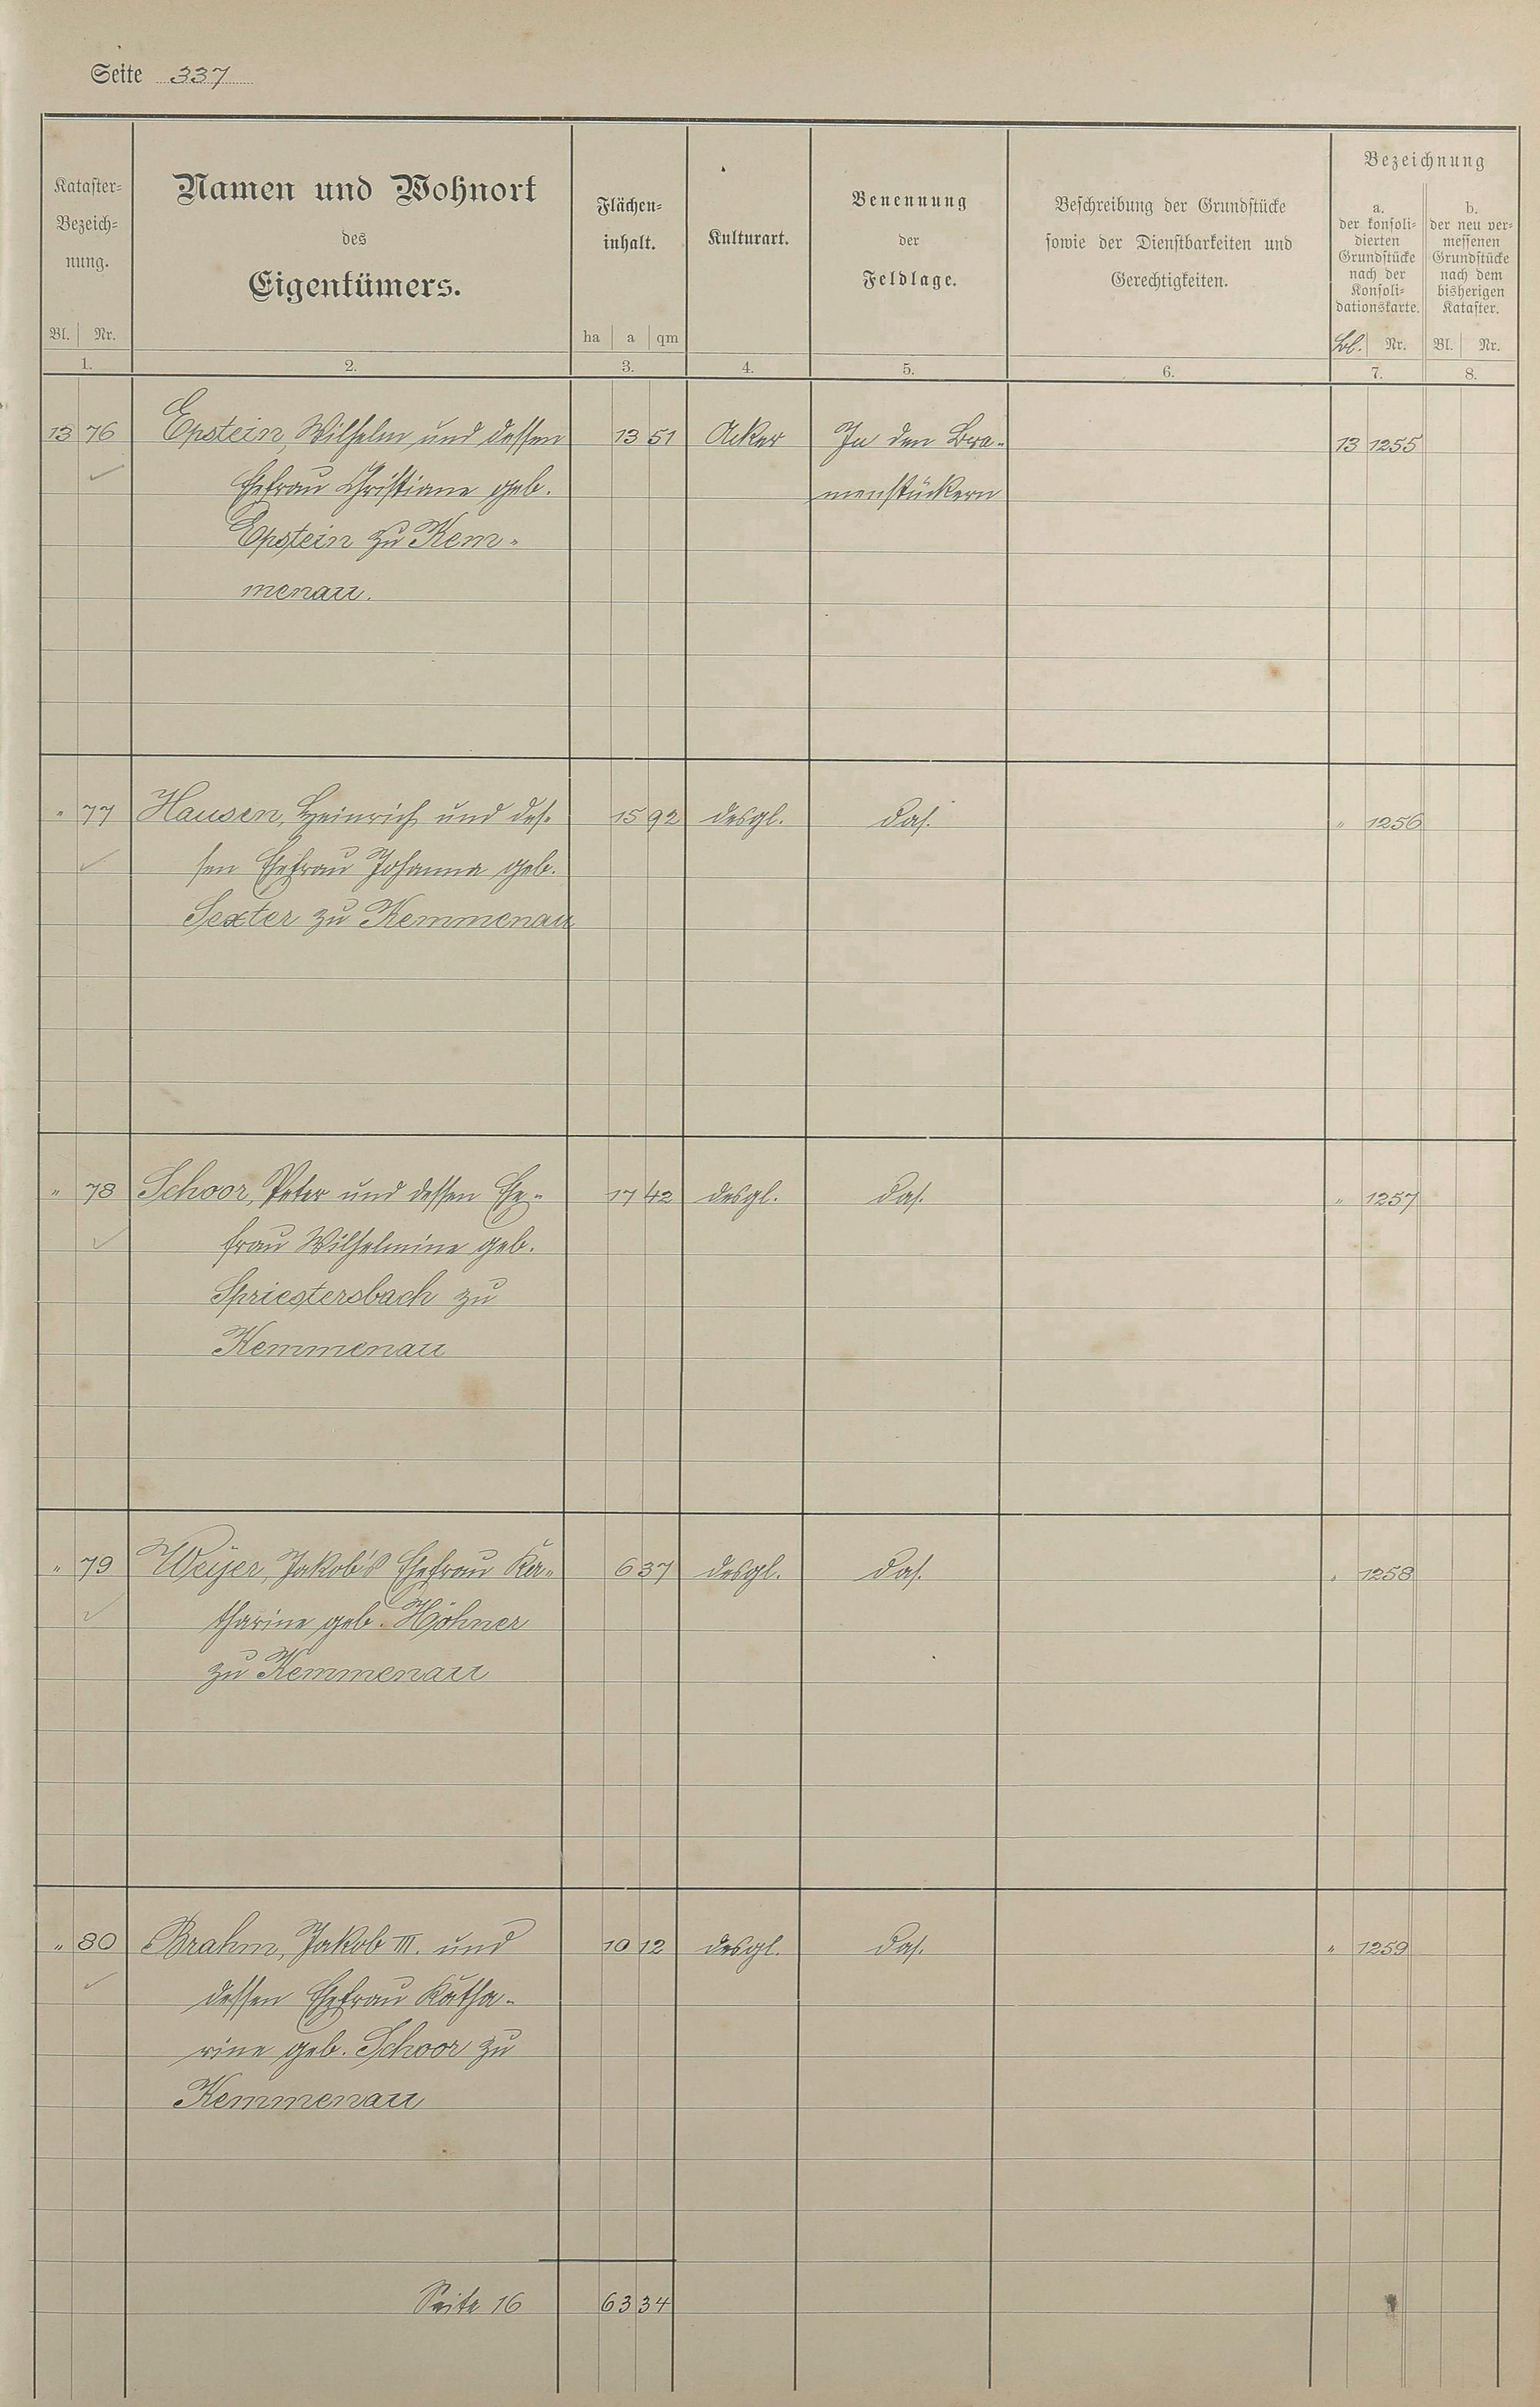 Seite 337
Kataster=
Bezeich=
nung.
Bl. Nr.
1.
Namen und Wohnort
des
Eigentümers.
2.
Flächen=
inhalt.
ha a qm
3.
Kulturart.
4.
Benennung
der
Feldlage.
5.
Beschreibung der Grundstücke
sowie der Dienstbarkeiten und
Gerechtigkeiten.
6.
Bezeichnung
a.
der konsoli=
dierten
Grundstücke
nach der
Konsoli=
dationskarte.
Bl. Nr.
7.
b.
der neu ver=
messenen
Grundstücke
nach dem
bisherigen
Kataster.
Bl. Nr.
8.
13 76 Epstein, Wilhelm und dessen 13 51 Acker In den Bra- 13 1255
Ehefrau Christiane geb. menstückern
Epstein zu Kem-
menau.
" 77 Hausen, Heinrich und des- 15 92 desgl. das. " 1256
sen Ehefrau Johanna geb.
Sexter zu Kemmenau
" 78 Schoor, Peter und dessen Ehe- 17 42 desgl. das. " 1257
frau Wilhelmine geb.
Spriestersbach zu
Kemmenau
" 79 Weyer, Jakob's Ehefrau Ka- 6 37 desgl. das. " 1258
tharine geb. Höhner
zu Kemmenau
" 80 Brahm, Jakob III. und 10 12 desgl. das. " 1259
dessen Ehefrau Katha-
rine geb. Schoor zu
Kemmenau
Seite 16 63 34